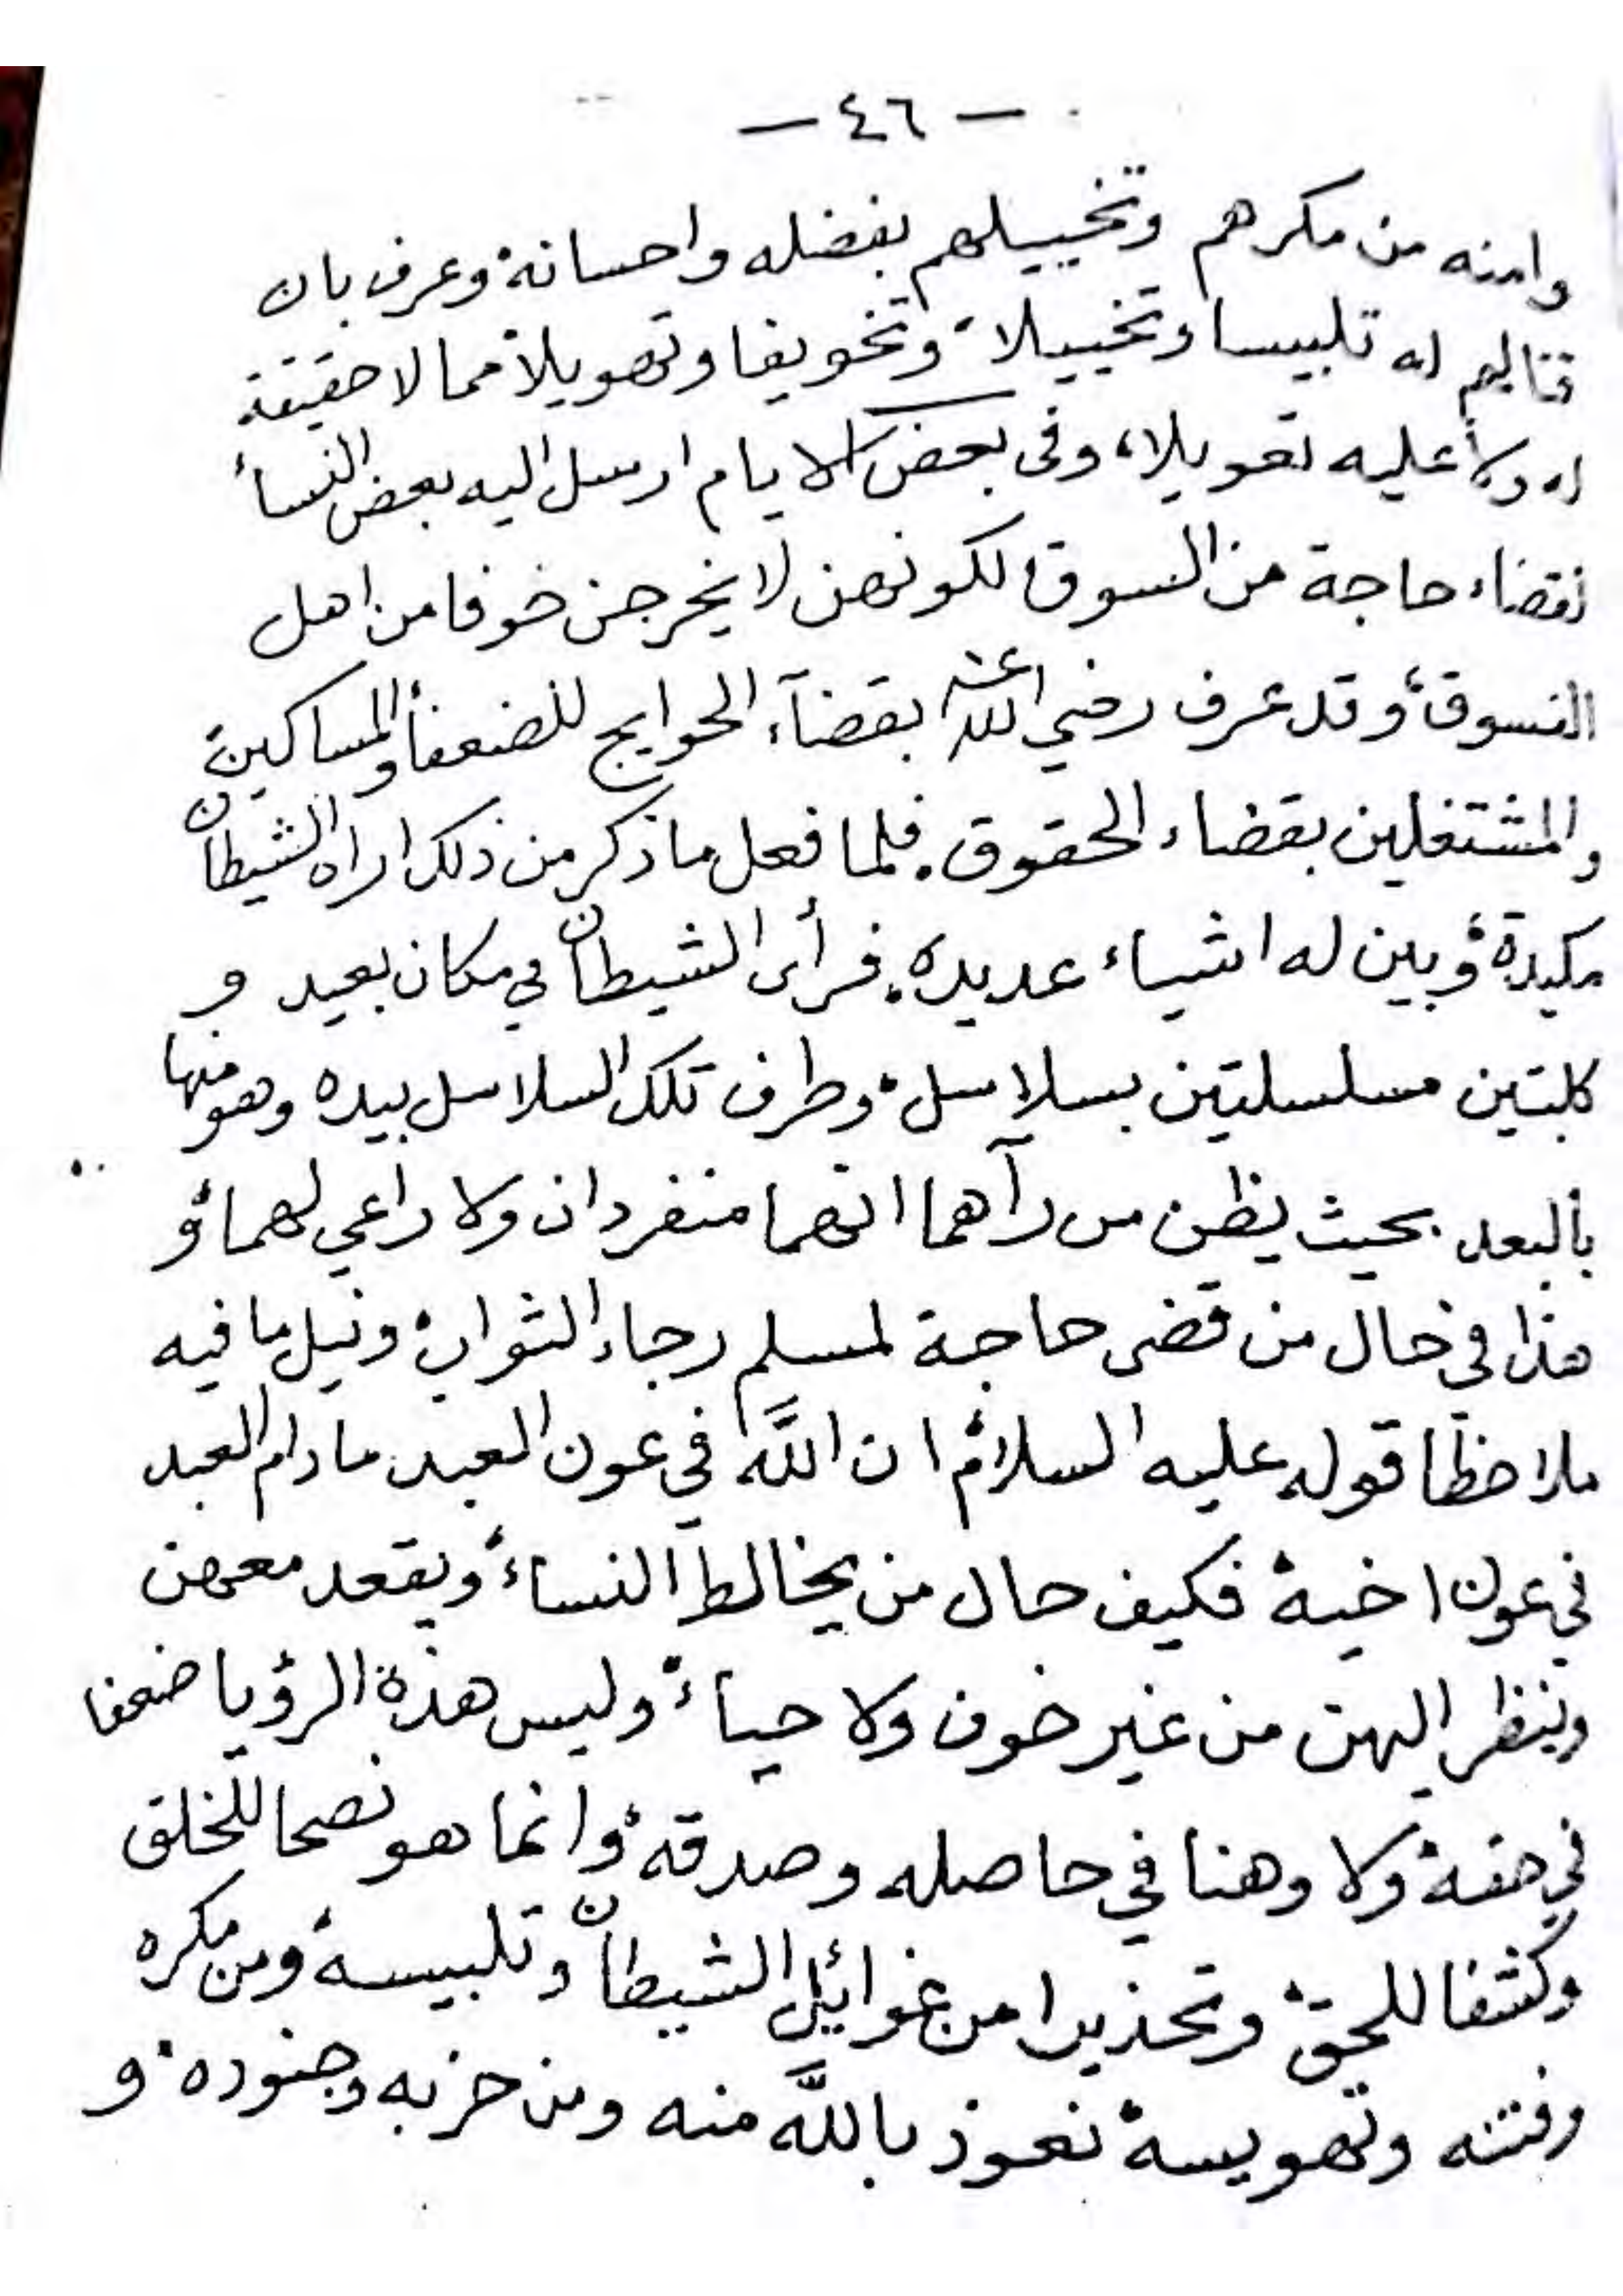 — ٤٦ —
وامنه من مكرهم وتخييلهم بفضله واحسانه وعرف بان
قتالهم له تلبيسا وتخييلا، وتخويفا وتهويلا مما لا حقيقة
له ولا عليه تعويلا، وفى بعض الايام ارسل اليه بعض النسأ
لقضاء حاجة من السوق لكونهن لا يخرجن خوفا من اهل
الفسوق، وقد عرف رضي الله عنه بقضآء الحوايج للضعفأ والمساكين
والمشتغلين بقضاء الحقوق. فلما فعل ما ذكر من ذلك اراه الشيطان
مكيدة، وبين له اشياء عديده. فرأى الشيطان في مكان بعيد و
كلبتين مسلسلتين بسلاسل، وطرف تلك السلاسل بيده وهو منها
بالبعد بحيث يظن من رآهما انهما منفردان ولا راعي لهما، و
هذا في حال من قضى حاجة لمسلم رجاء الثواب، ونيل ما فيه
ملاحظا قوله عليه السلام ان اللَّه في عون العبد مادام العبد
في عون اخيه، فكيف حال من يخالط النساء، ويقعد معهن
وينظر اليهن من غير خوف ولا حياء، وليس هذه الرؤيا ضعفا
في حقه، ولا وهنا في حاصله وصدقه، وانما هو نصحا للخلق
وكشفا للحق، وتحذيرا من غوائل الشيطان وتلبيسه، ومن مكره
وفتنه وتهويسه، نعوذ باللَّه منه ومن حزبه وجنوده، و